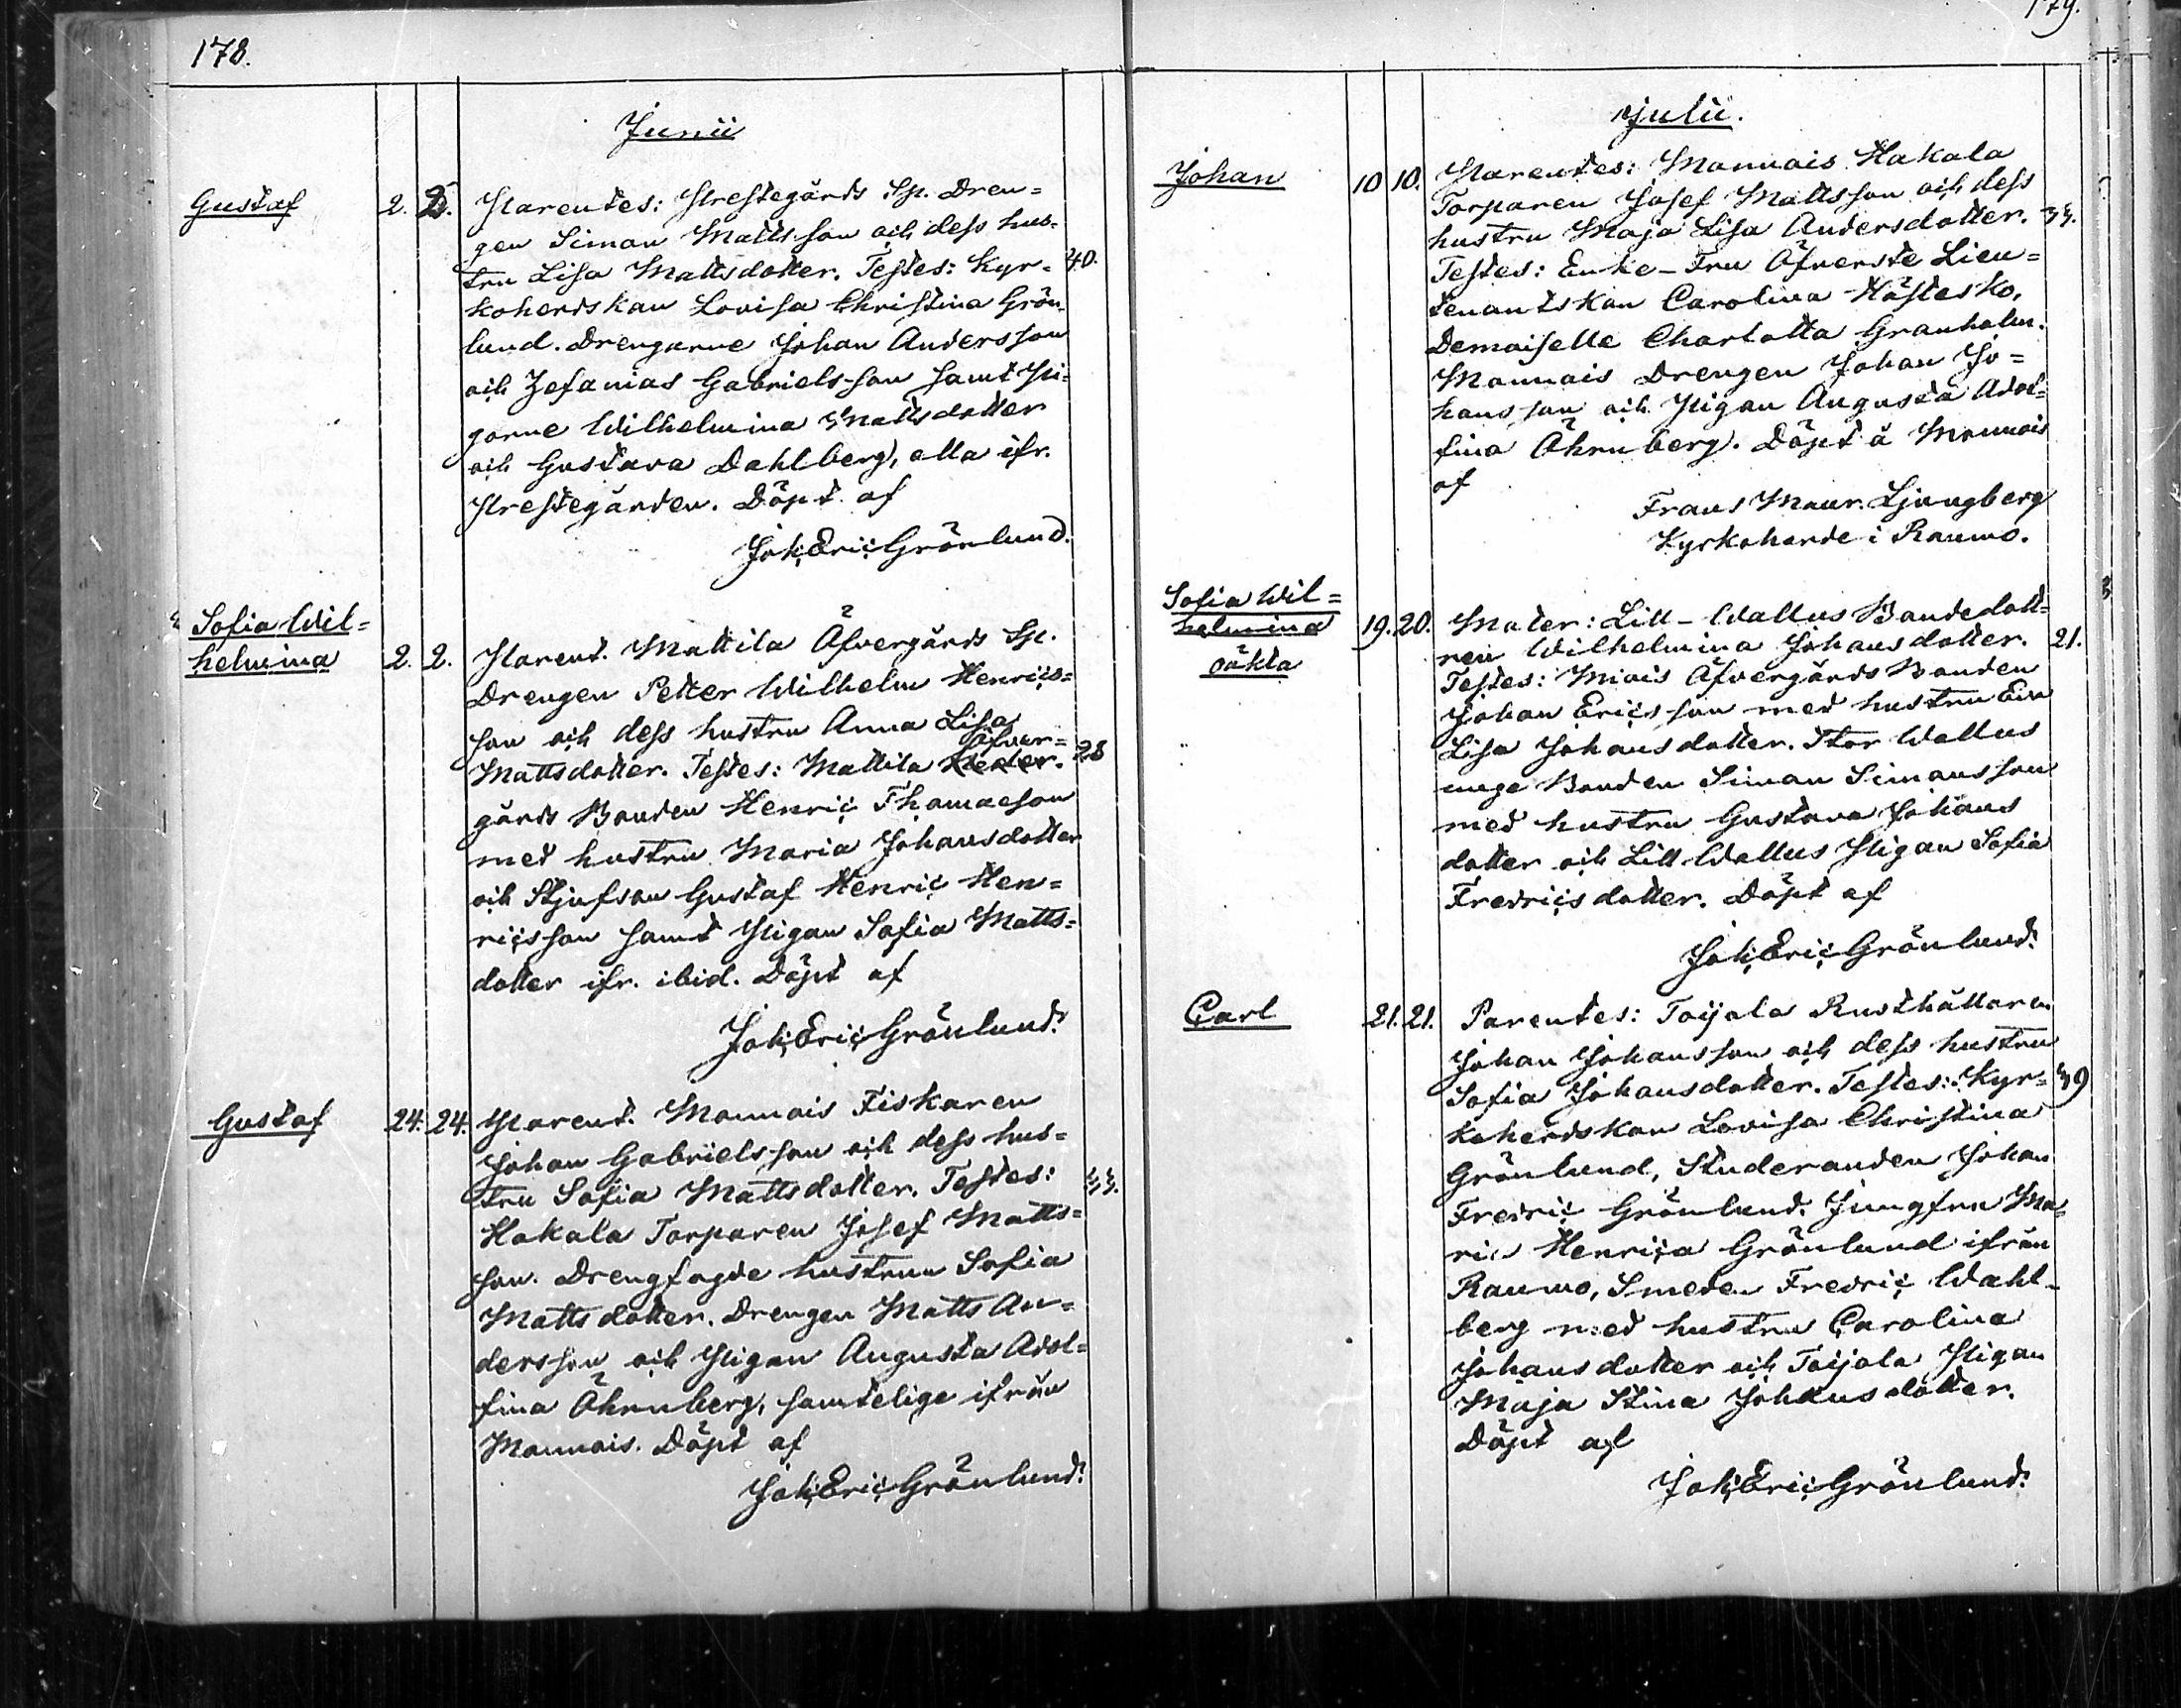 178.
Junii
Gustaf 2. 5. Parentes: Prestegårds Sp. Dren=
gen Simon Mattsson och dess hus=
tru Lisa Mattsdotter. Testes: Kyr= 40.
koherdskan Lovisa Christina Grön
lund. Drengarne Johan Andersson
och Zefanias Gabrielsson samt Pi=
gorne Wilhelmina Mattsdotter
och Gustava Dahlberg, alla ifr.
Prestegården. Döpt af
Joh: Eric Grönlund.
Sofia Wil=
helmina 2. 2. Parent. Mattila Åfvergårds Sp.
Drengen Petter Wilhelm Henrics=
son och dess hustru Anna Lisa
Mattsdotter. Testes: Mattila öfver= 28
gårds Bonden Henric Thomasson
med hustru Maria Johansdotter
och Stjufson Gustaf Henric Hen=
ricsson samt Pigan Sofia Matts=
dotter ifr. ibid. Döpt af
Joh: Eric Grönlund.
Gustaf 24. 24. Parent. Monnois Fiskaren
Johan Gabrielsson och dess hus=
tru Sofia Mattsdotter. Testes: 33.
Hakala Torparen Josef Matts=
son. Drengfogde hustrun Sofia
Mattsdotter. Drengen Matts An=
dersson och Pigan Augusta Adol=
fina Öhrnberg, samtelige ifrån
Monnois. Döpt af
Joh: Eric Grönlund.
179.
Julii.
Johan 10 10. Parentes: Monnois Hakala
Torparen Josef Mattsson och dess
hustru Maja Lisa Andersdotter. 34.
Testes: Enke-Fru Öfverste Lieu=
tenantskan Carolina Hästesko,
Demoiselle Charlotta Granholm.
Monnois Drengen Johan Jo=
hansson och Pigan Augusta Adol=
fina Öhrnberg. Döpt å Monnois
af
Frans Maur. Ljungberg
Kyrkoherde i Raumo.
Sofia Wil=
helmina 19. 20. Mater: Lill-Wallus Bondedott=
oäkta
ren Wilhelmina Johansdotter. 21.
Testes: Åfvergårds Bonden
Johan Ericsson med hustru Eva
Lisa Johansdotter. Stor Wallus
unge Bonden Simon Simonsson
med hustru Gustava Johans
dotter och Lill Wallus Pigan Sofia
Fredricsdotter. Döpt af
Joh: Eric Grönlund.
Carl 21. 21. Parentes: Toijala Rusthållaren
Johan Johansson och dess hustru
Sofia Johansdotter. Testes: Kyr= 39
koherdskan Lovisa Christina
Grönlund, Studeranden Johan
Fredric Grönlund. Jungfru Ma=
ria Henrica Grönlund ifrån
Raumo, Smeden Fredric Wahl=
berg med hustru Carolina
Johansdotter och Toijala Pigan
Maja Stina Johansdotter.
Döpt af
Joh: Eric Grönlund.